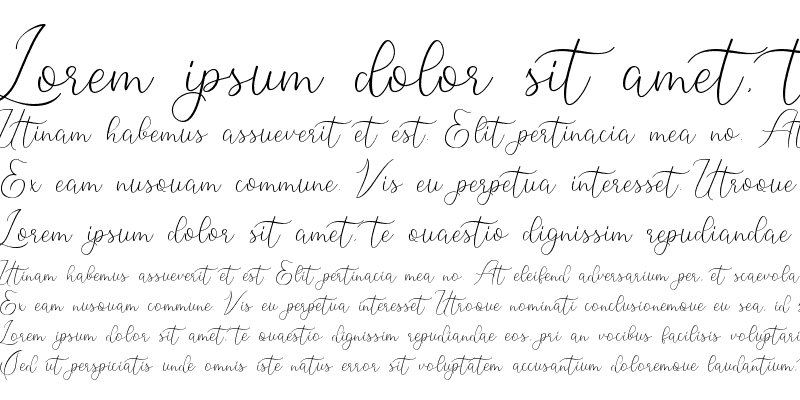 Lorem ipsum dolor sit amet, t
Utinam habemus assueverit et est. Elit pertinacia mea no. At
Ex eam nusquam commune. Vis eu perpetua interesset. Utroque
Lorem ipsum dolor sit amet, te quaestio dignissim repudiandae
Utinam habemus assueverit et est. Elit pertinacia mea no. At eleifend adversarium per, et scaevola
Ex eam nusquam commune. Vis eu perpetua interesset. Utroque nominati conclusionemque eu sea, id s
Lorem ipsum dolor sit amet, te quaestio dignissim repudiandae eos, pri an vocibus facilisis voluptari
Sed ut perspiciatis unde omnis iste natus error sit voluptatem accusantium doloremque laudantium,